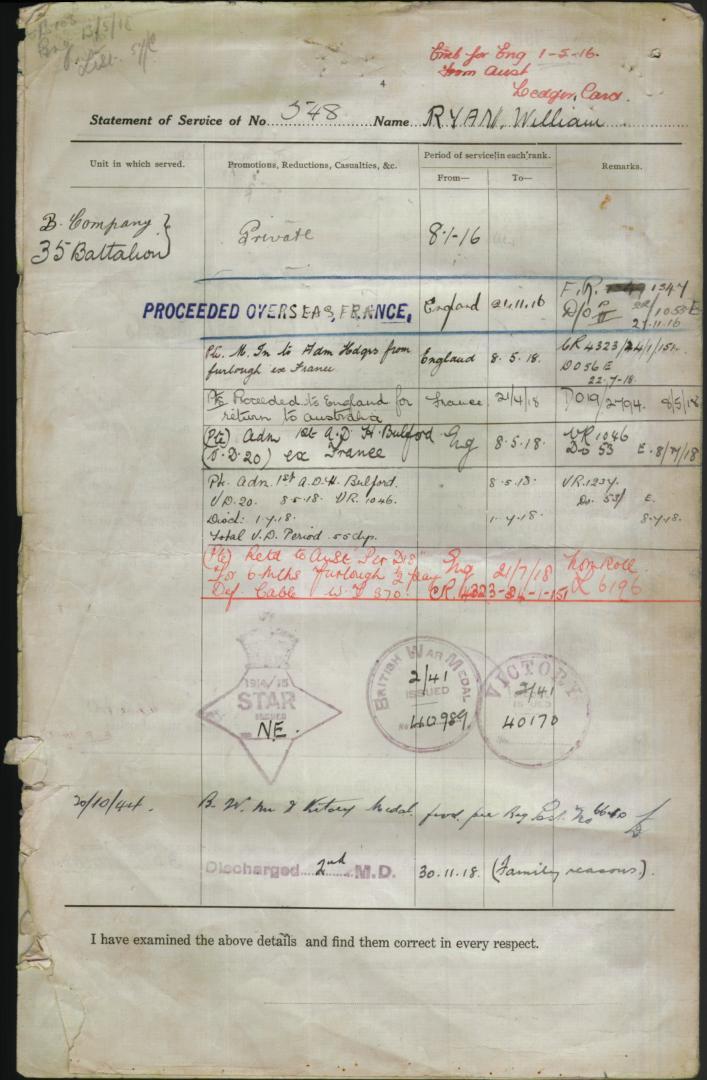 B/5/18
Eng.
List. 54/C
Emb for Eng 1-5-16.
from Aust
Ledger, Card.
4
Statement of Service of No. 548 Name RYAN, William
Unit in which served. Promotions, Reductions, Casualties, &c. Period of service in each rank. Remarks.
From— To—
B. Company
35 Battalion
Private 8.1-16
PROCEEDED OVERSEAS, FRANCE, England 21.11.16
F.R. 1347
D/O P II 22/1053 E
27.11.16
Pte. M. In to Adm Hdqrs from England 8.5.18. CR 4323/24/1/151.
furlough ex France DO 56 E
22.7-18.
Pte Proceeded to England for France 21/4/18 DO 19/2794. 8/5/18
return to australia
(Pte) Adm 1st A.D.H. Bulford Eng 8-5.18. VR 1046
(V.D.20) ex France DO 53 E. 8/7/18
Pte. Adm. 1st A.D.H. Bulford. 8.5.18. VR.1237.
V.D.20. 8.5.18. VR. 1046. Do. 53/ E.
Disch: 1.7.18. 1.7.18. 8.7.18.
Total V.D. Period 55 dys.
(Pte) Retd to Aust "Per D18" Eng 21/7/18 Nom Roll
for 6 Mths furlough ½ pay L 6196
Def. Cable W.I 870. CR. 4323-24-1-151
1914/15
STAR
ISSUED
N.E.
BRITISH WAR MEDAL
2/41
ISSUED
No. 40989.
VICTORY
2/41
ISSUED
40170
No.
20/10/44. B. W. M & Victory Medal fwd. per Reg Post No
Discharged 2nd M.D. 30.11.18. (Family reasons.).
I have examined the above details and find them correct in every respect.